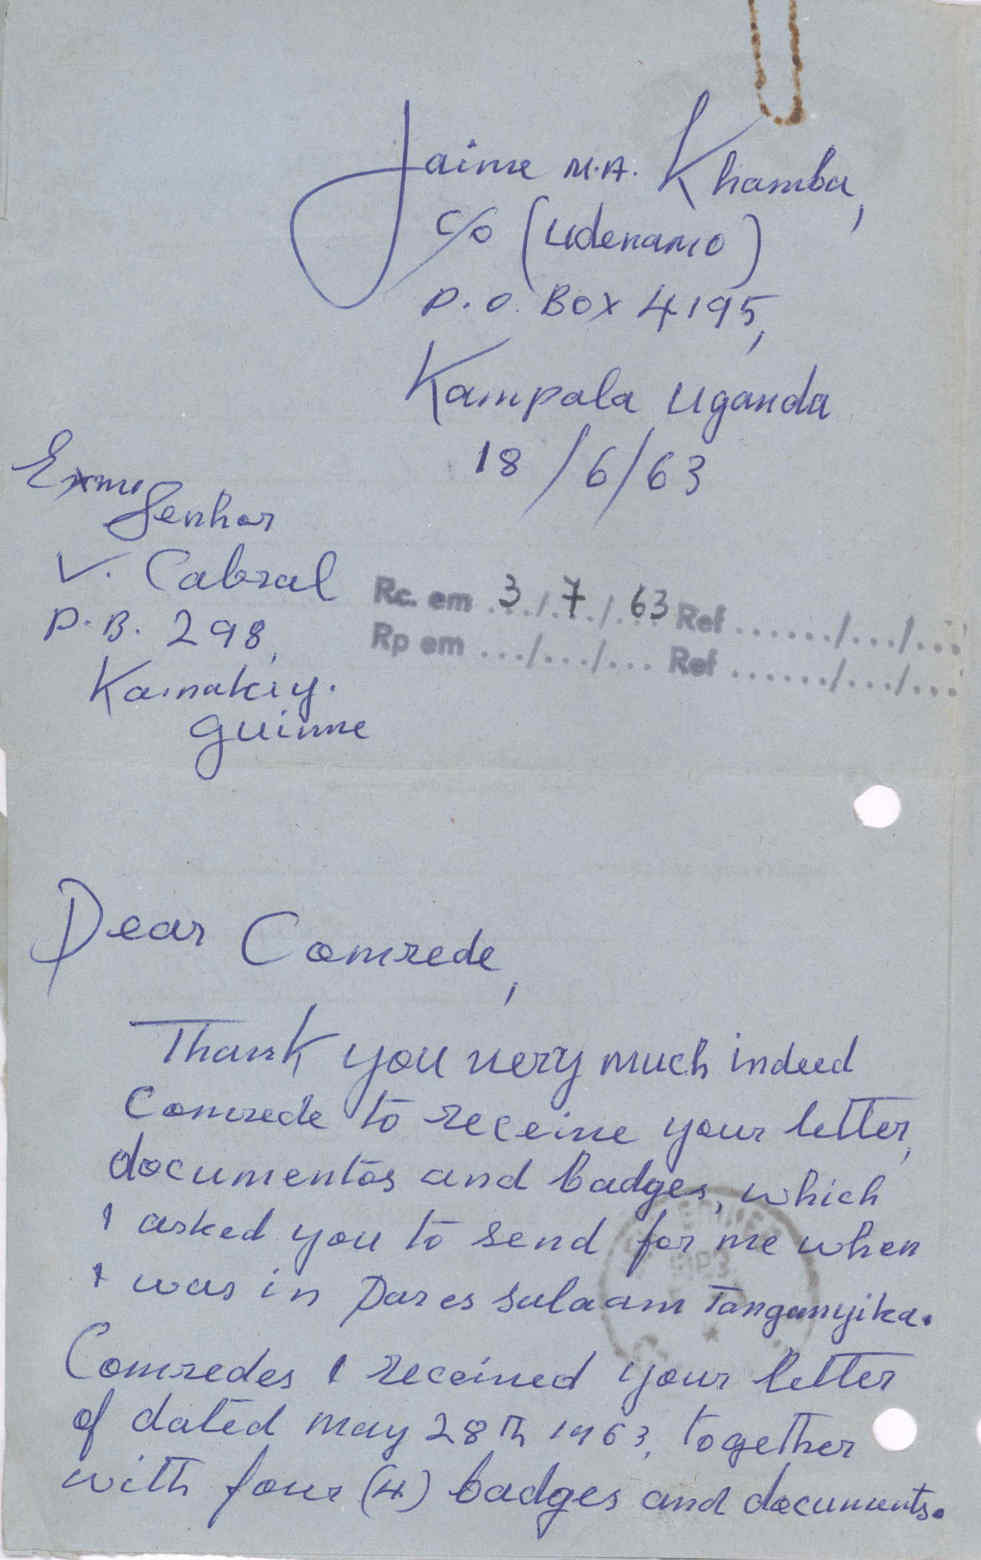 Jaime M.A. Khamba,
c/o (Udenamo)
P.O. BOX 4195,
Kampala Uganda
18/6/63
Exmo
Senhor
V. Cabral
P.B. 298,
Konakry.
Guinne
Rc. em 3/7/63 Ref ....../.../...
Rp em .../.../... Ref ....../.../...
Dear Comrede,
Thank you very much indeed
Comrede to receive your letter,
documentos and badges, which
I asked you to send for me when
I was in Dar es salaam Tanganyika.
Comredes I received your letter
of dated may 28th 1963, together
with four (4) badges and documents.